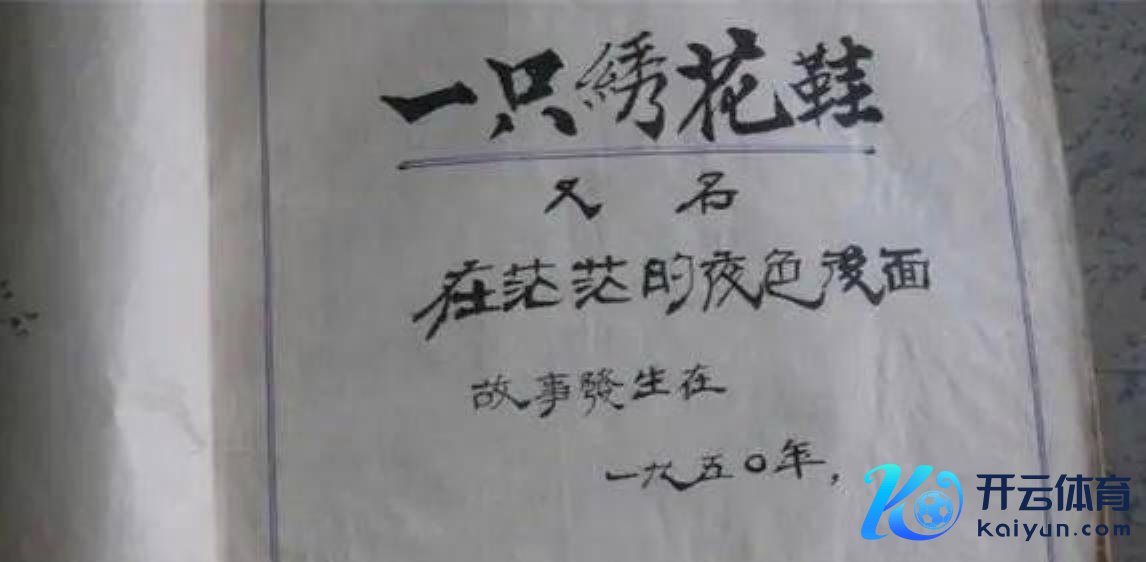 一只綉花鞋
又名
在茫茫的夜色後面
故事發生在
一九五〇年，
开云体育
Kaiyun.com